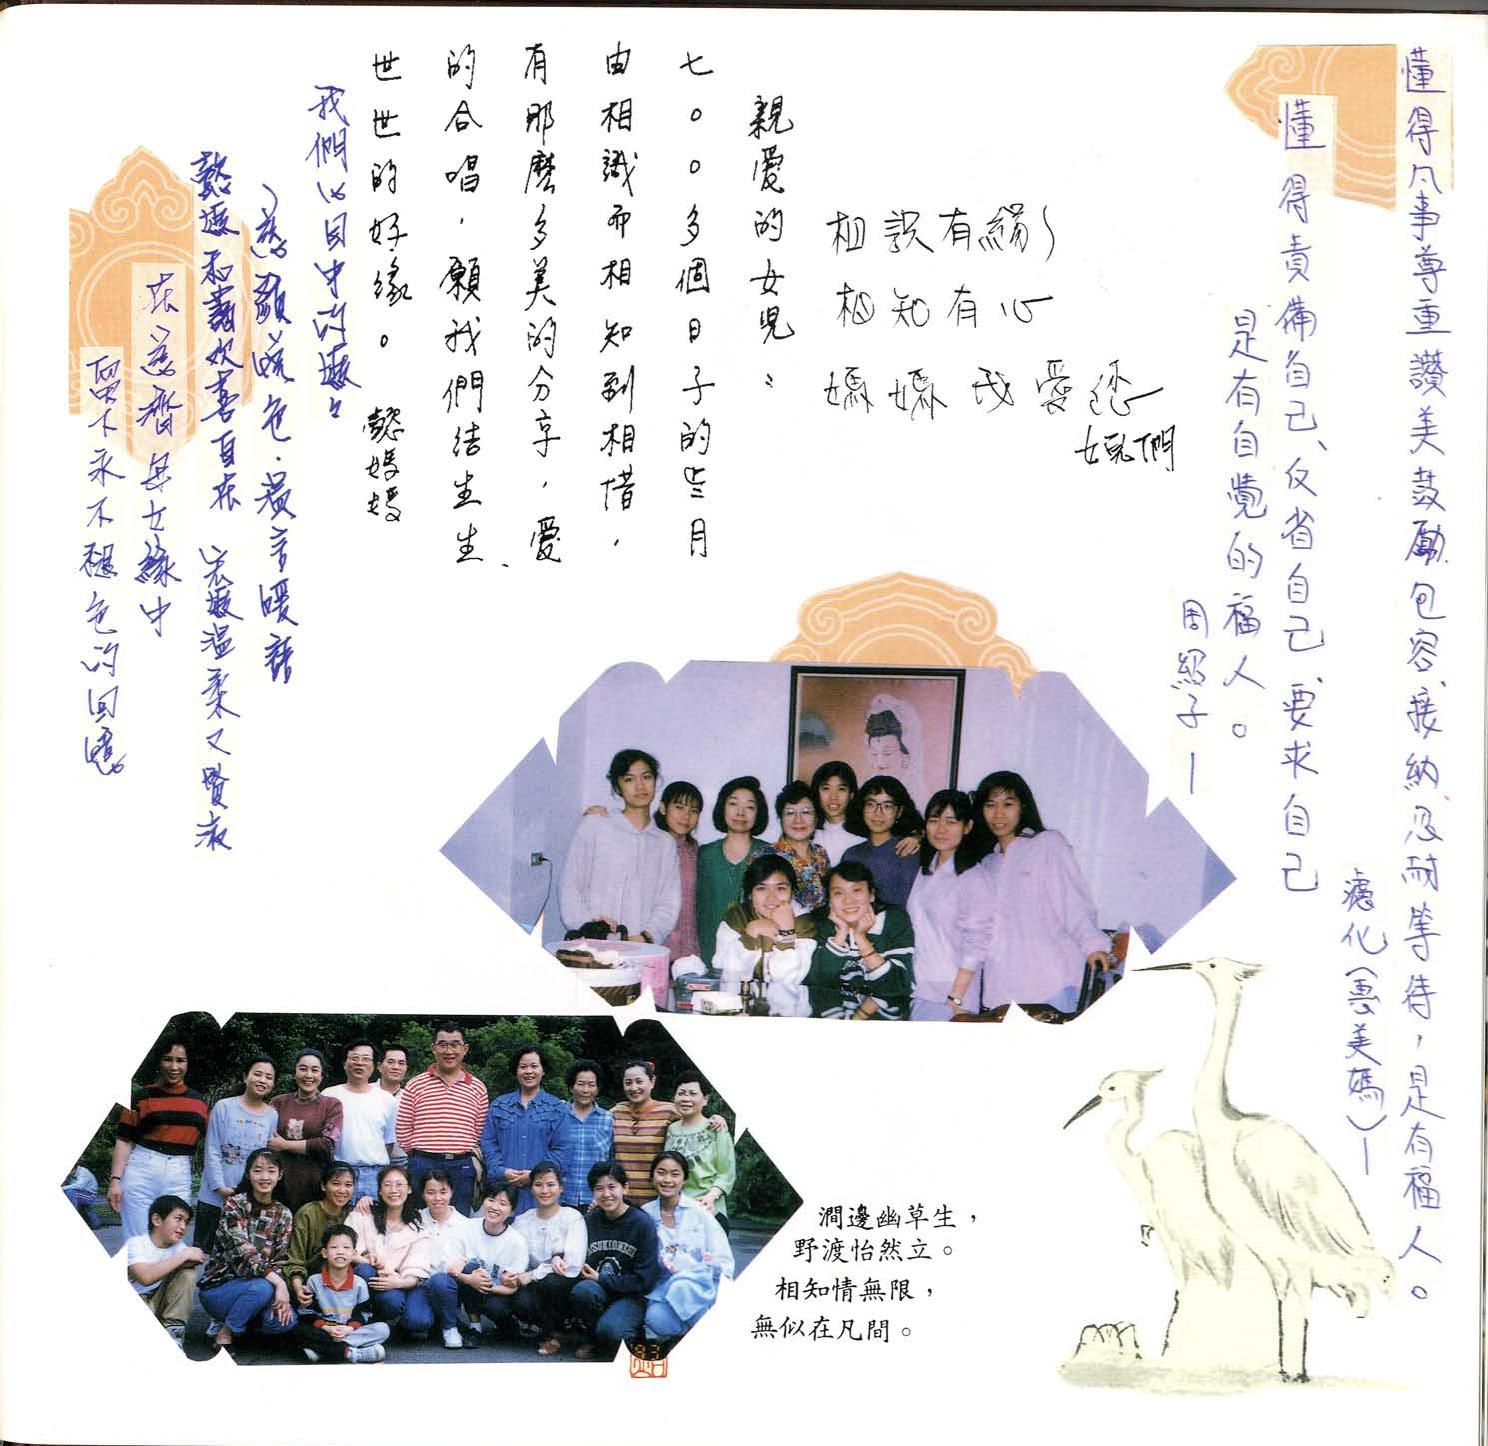 懂得凡事尊重讚美鼓勵包容、接納忍耐等待，是有福人。
德化(惠美媽)—
懂得責備自己、反省自己、要求自己
是有自覺的福人。
周紹子—
相識有緣
相知有心
媽媽我愛您
女兒們
親愛的女兒：
七〇〇多個日子的歲月
由相識而相知到相惜，
有那麼多美的分享，愛
的合唱，願我們結生生、
世世的好緣。
懿媽媽
我們心目中的
慈顏 色．愛言暖語
懿 和藹歡喜自在 溫柔又賢淑
在慈濟母女緣中
留下永不褪色的回憶
澗邊幽草生，
野渡怡然立。
相知情無限，
無似在凡間。